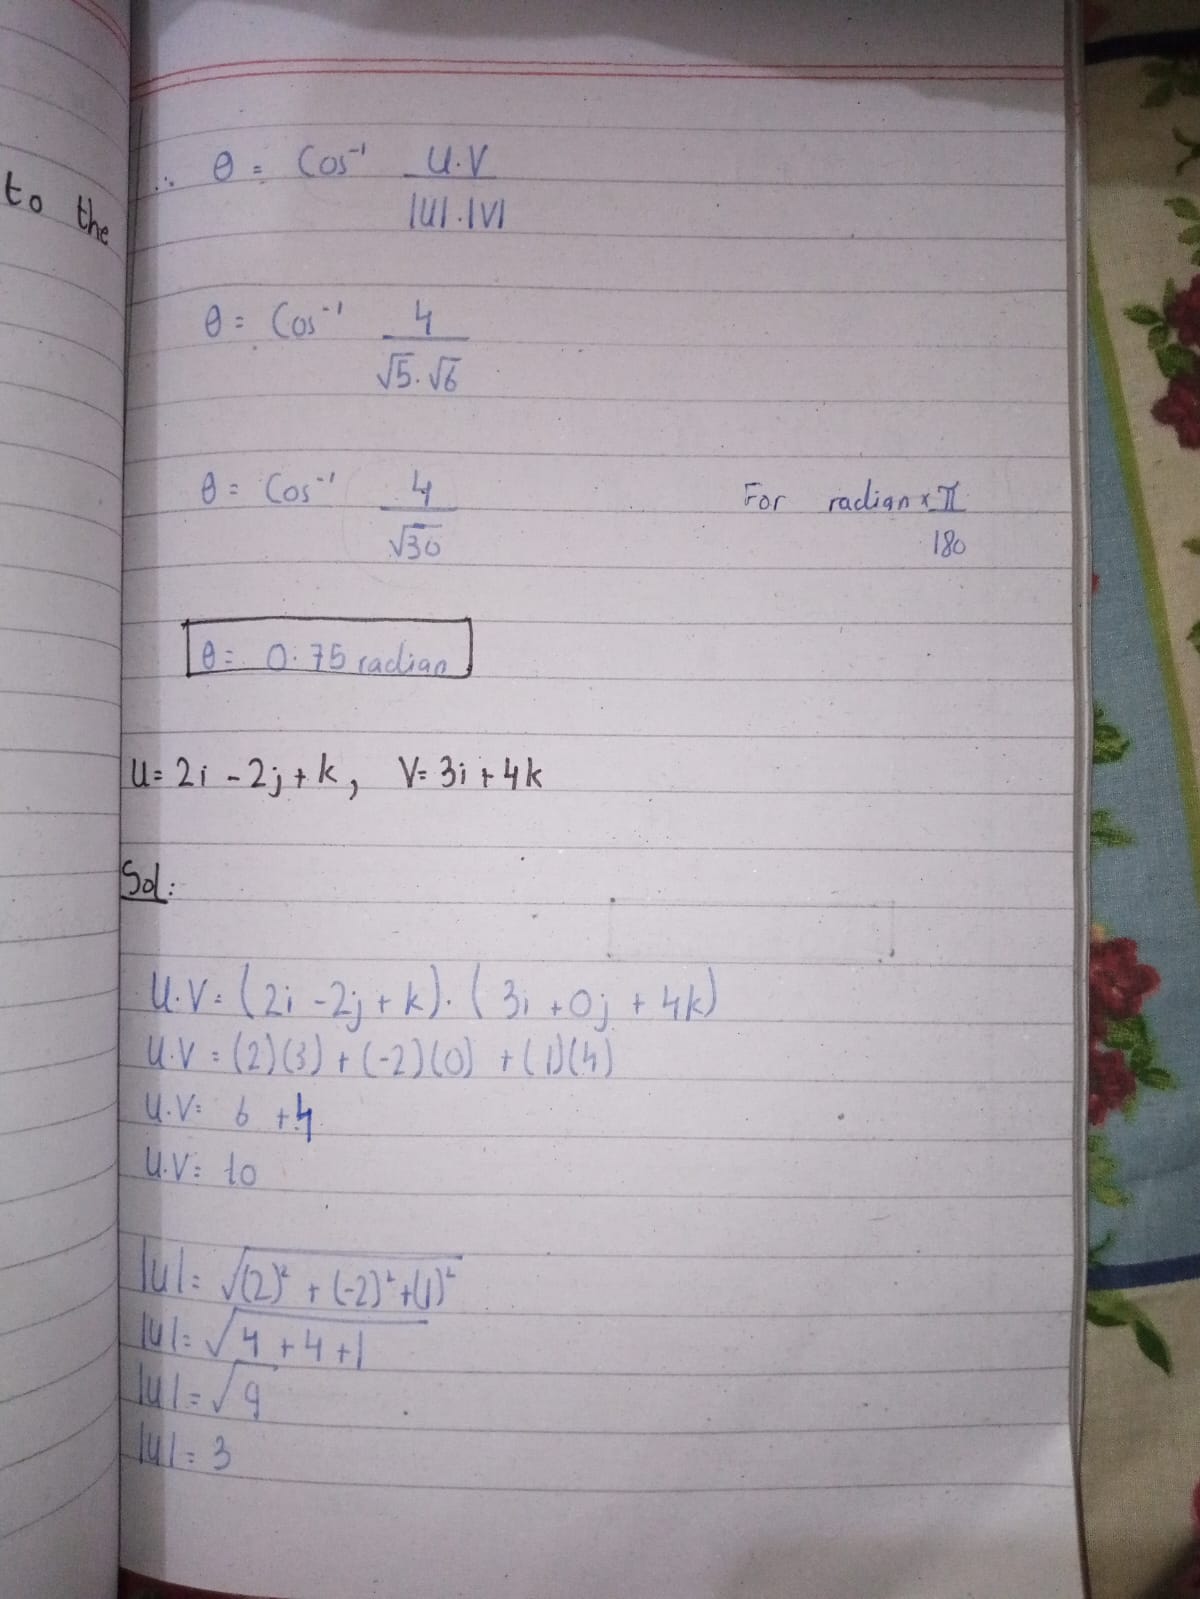 to the
∴ θ = Cos⁻¹ U.V
|U|.|V|
θ = Cos⁻¹ 4
√5.√6
θ = Cos⁻¹ 4
√30
For radian × π
180
θ = 0.75 radian
U= 2i - 2j + k, V= 3i + 4k
Sol:
U.V= (2i - 2j + k). (3i + 0j + 4k)
U.V = (2)(3) + (-2)(0) + (1)(4)
U.V= 6 + 4
U.V= 10
|U|= √(2)² + (-2)² + (1)²
|U|= √4 + 4 + 1
|U|= √9
|U|= 3